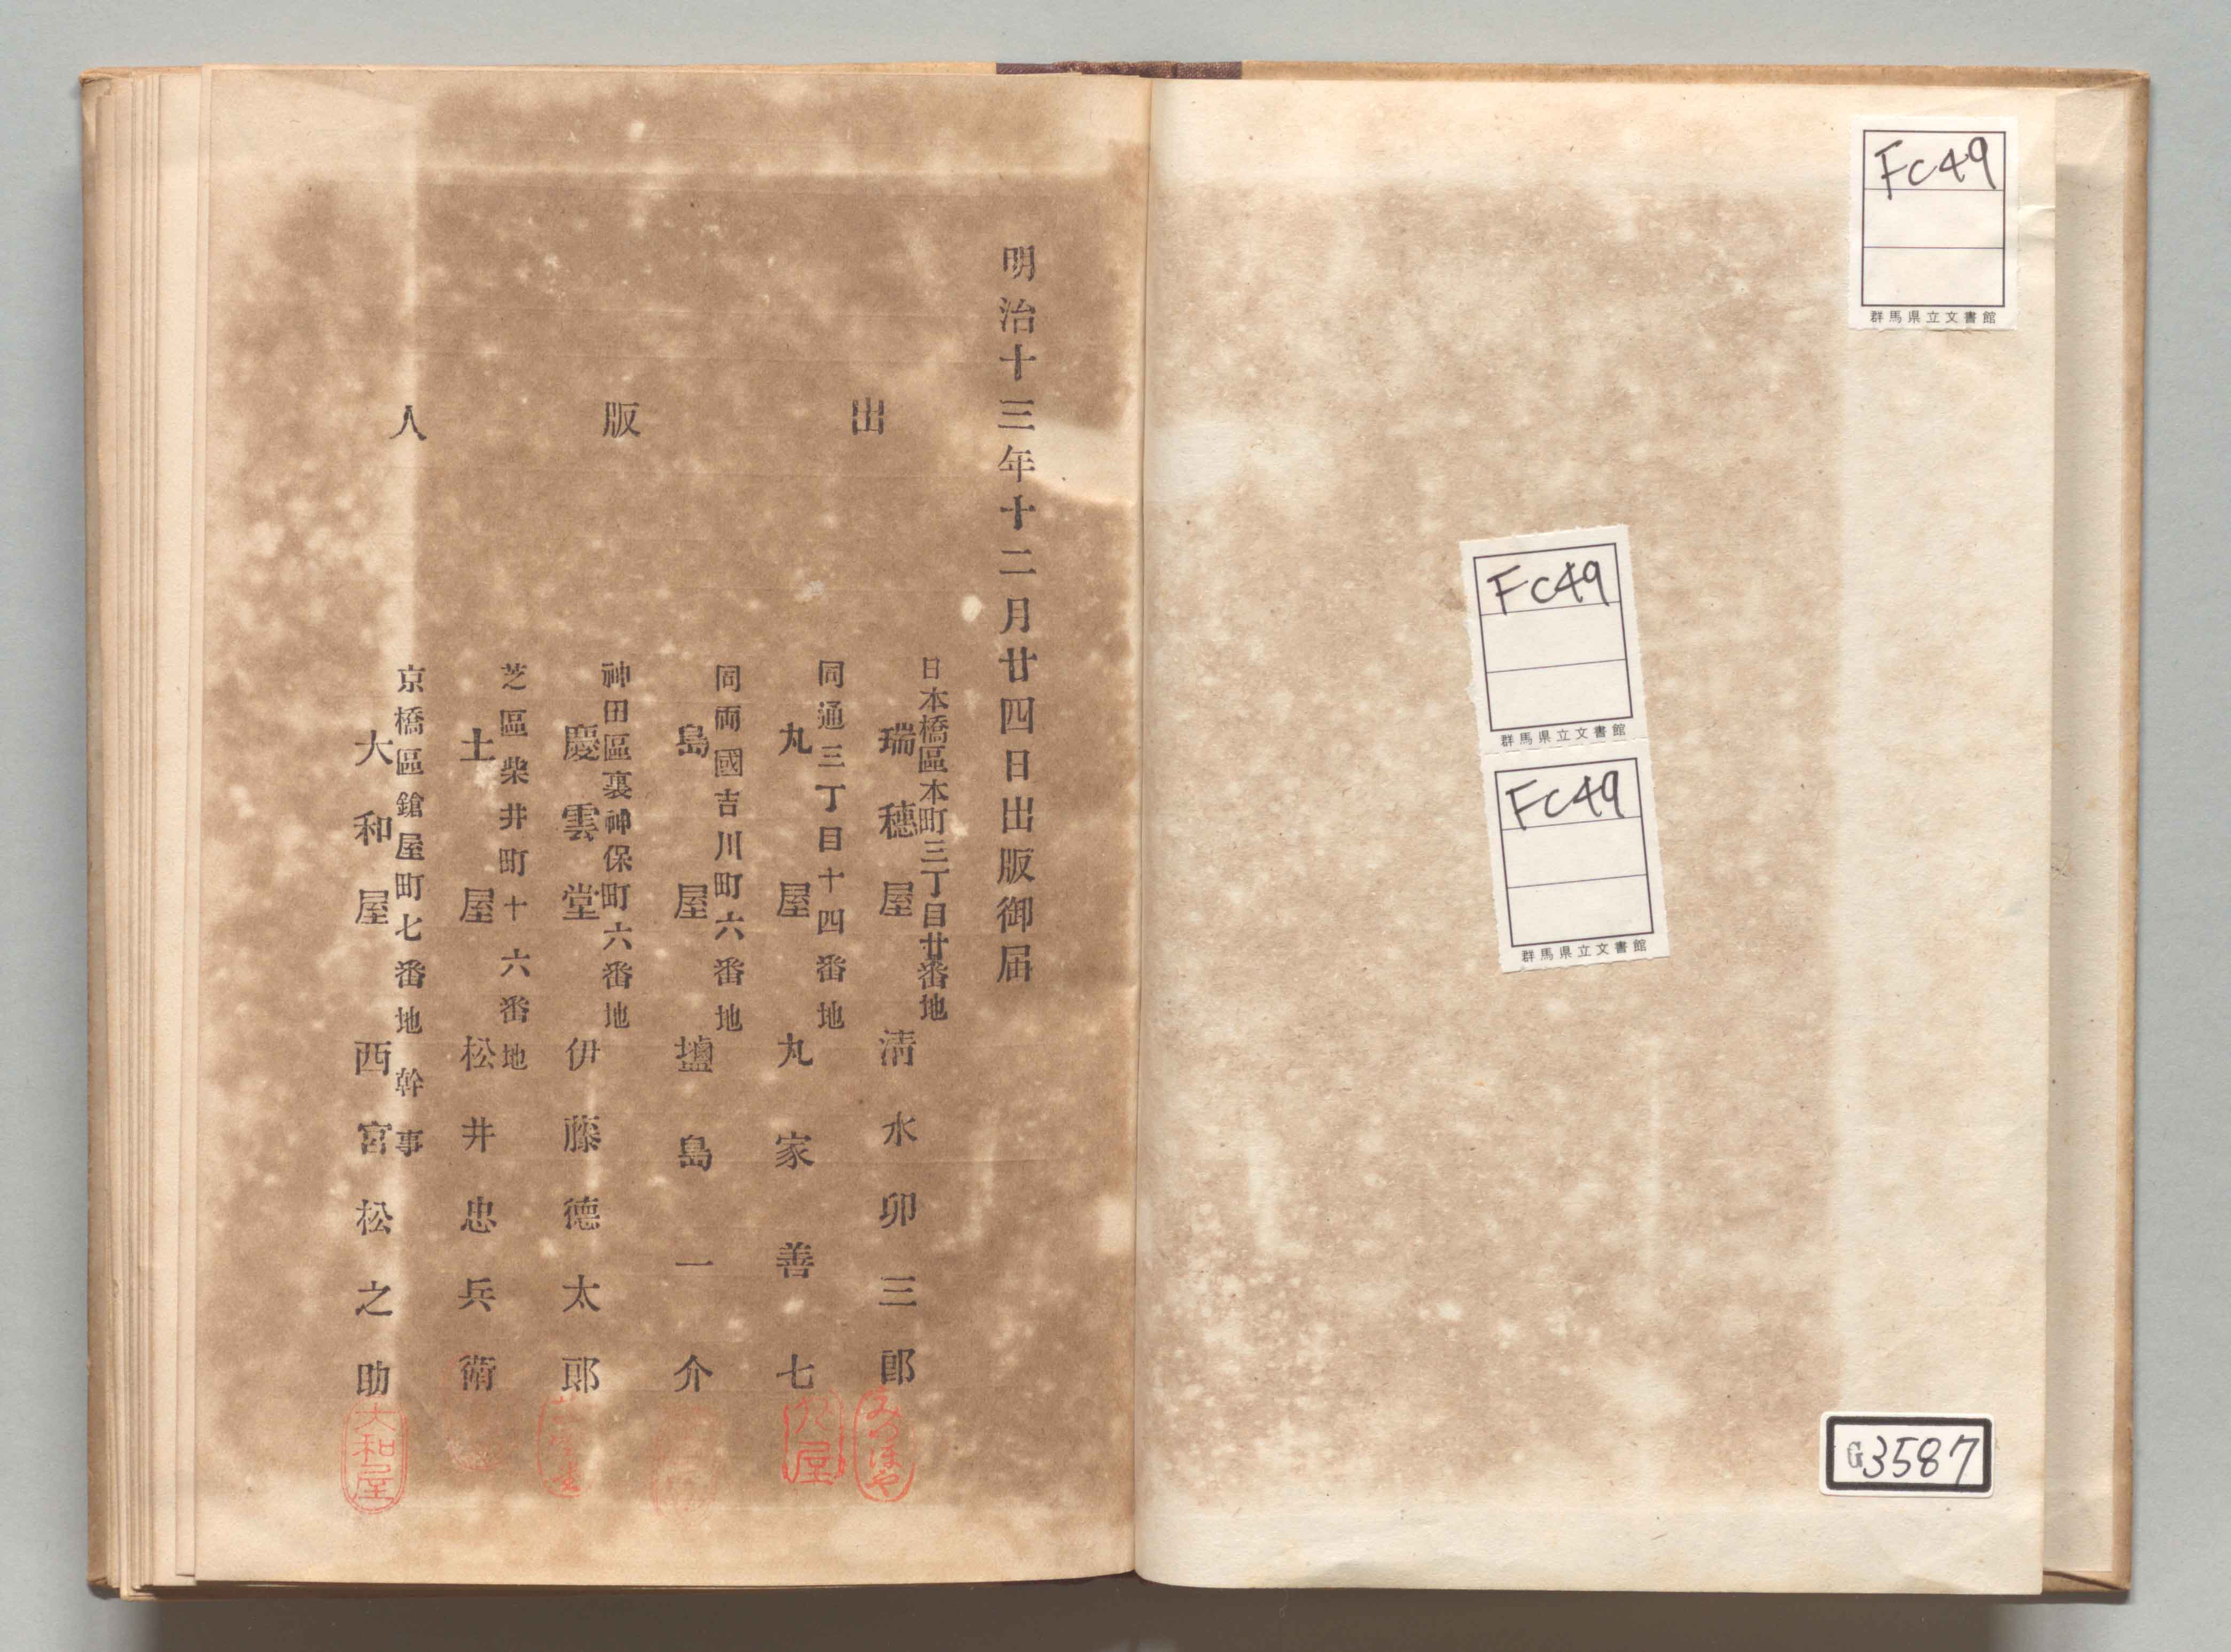 Fc49
群馬県立文書館
Fc49
群馬県立文書館
Fc49
群馬県立文書館
G3587
明治十三年十二月廿四日出版御届
出版人
日本橋區本町三丁目廿番地
瑞穗屋 清水卯三郎
みつほや
同通三丁目十四番地
丸屋 丸家善七
丸屋
同兩國吉川町六番地
島屋 鹽島一介
神田區裏神保町六番地
慶雲堂 伊藤德太郎
芝區柴井町十六番地
土屋 松井忠兵衛
京橋區鎗屋町七番地 幹事
大和屋 西宮松之助
大和屋